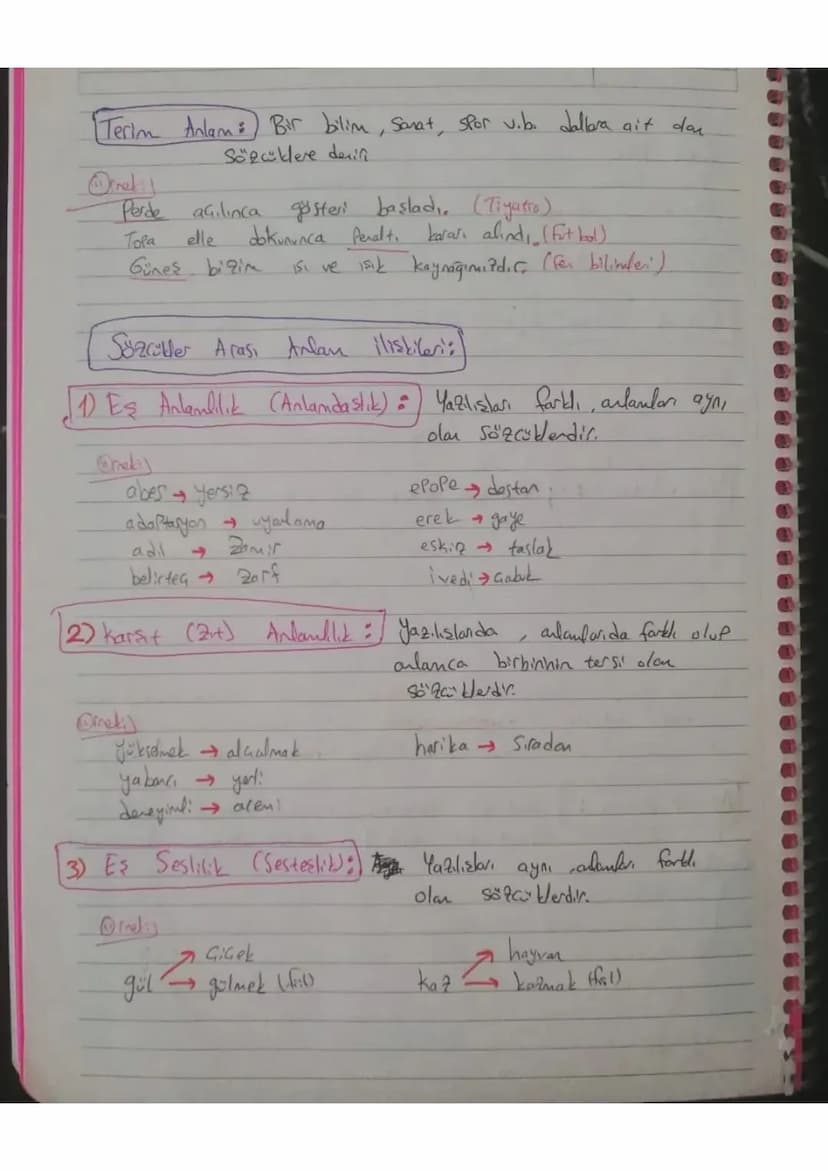 Terim Anlam: Bir bilim, sanat, spor v.b. dallara ait olan
sözcüklere denir
Örnek;
Perde açılınca gösteri başladı. (Tiyatro)
Topa elle dokununca penaltı kararı alındı. (Futbol)
Güneş bizim ısı ve ışık kaynağımızdır. (Fen bilimleri)
Sözcükler Arası Anlam ilişkileri:
1) Eş Anlamlılık (Anlamdaşlık): Yazılışları farklı, anlamları aynı
olan sözcüklerdir.
Örnek;
abes → yersiz epope → destan
adaptasyon → uyarlama erek → gaye
adıl → Zamir eskiz → taslak
belirteç → zarf ivedi → Çabuk
2) Karşıt (Zıt) Anlamlılık: Yazılışlarıda, anlamlarıda farklı olup
anlamca birbirinin tersi olan
sözcüklerdir.
Örnek;
yükselmek → alçalmak harika → Sıradan
yabancı → yerli
deneyimli → acemi
3) Eş Seslilik (Sesteşlik): Yazılışları aynı, anlamları farklı
olan sözcüklerdir.
Örnek;
Çiçek hayvan
gül → gülmek (fiil) kaz → kazmak (fiil)